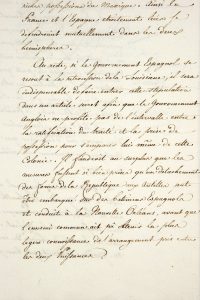 riches possessions du Mexique. Ainsi la
France et l'Espagne étroitement liées se
défendroient mutuellement dans les deux
hémisphères.
Au reste, si le Gouvernement Espagnol se
resout à la retrocession de la Louisiane, il sera
indispensable de faire entrer cette stipulation
dans un article secret afin que le Gouvernement
Anglois ne profite pas de l'intervalle entre
la ratification du traité et la prise de
possession pour s'emparer lui même de cette
Colonie. Il faudroit au surplus que les
mesures fussent si bien prises qu'un détachement
des forces de la République aux Antilles eut
été embarqué sur des bâtimens Espagnols
et conduit à la Nouvelle Orléans, avant que
l'ennemi commun ait pu obtenir la plus
légère connoissance de l'arrangement pris entre
les deux Puissances.